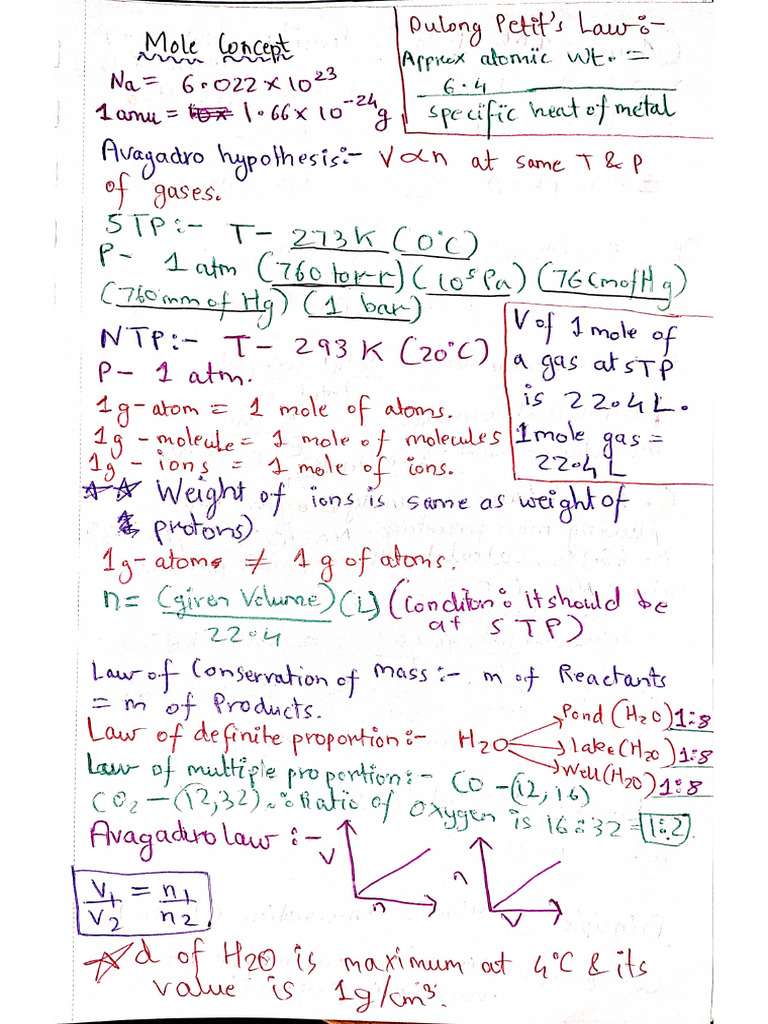 Mole Concept
Na = 6.022 x 10²³
1 amu = 1.66 x 10⁻²⁴ g
Dulong Petit's Law:-
Approx atomic wt. =
6.4
specific heat of metal
Avagadro hypothesis:- V ∝ n at same T & P
of gases.
STP:- T- 273K (0°C)
P- 1 atm (760 torr) (10⁵ Pa) (76 cm of Hg)
(760 mm of Hg) (1 bar)
NTP:- T- 293 K (20°C)
P- 1 atm.
V of 1 mole of
a gas at STP
is 22.4 L.
1 mole gas =
22.4 L
1g-atom = 1 mole of atoms.
1g-molecule = 1 mole of molecules
1g-ions = 1 mole of ions.
☆☆ Weight of ions is same as weight of
protons)
1g-atoms ≠ 1 g of atoms.
n = (given Volume) (L) (Condition: it should be
22.4 at STP)
Law of Conservation of mass:- m of Reactants
= m of Products.
Law of definite proportion:- H2O
Pond (H2O) 1:8
Lake (H2O) 1:8
Well (H2O) 1:8
Law of multiple proportion:- CO - (12, 16)
CO2 - (12, 32). ∴ Ratio of oxygen is 16:32 = 1:2.
Avagadro law:-
V
n
n
V
V1/V2 = n1/n2
☆ d of H2O is maximum at 4°C & its
value is 1g/cm³.